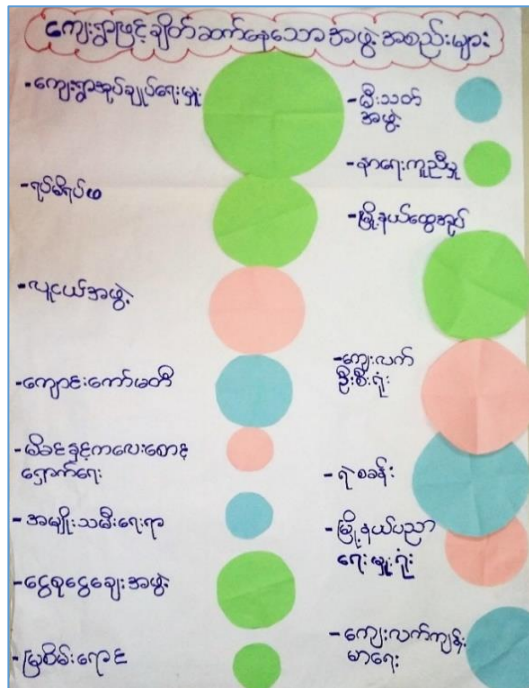 ကျေးရွာဖြင့်ချိတ်ဆက်နေသောအဖွဲ့အစည်းများ
-ကျေးရွာအုပ်ချုပ်ရေးမှူး
-ရပ်မိရပ်ဖ
-လူငယ်အဖွဲ့
-ကျောင်းကော်မတီ
-မိခင်နှင့်ကလေးစောင့်
ရှောက်ရေး
-အမျိုးသမီးရေးရာ
-ငွေစုငွေချေးအဖွဲ့
-မြစိမ်းရောင်
-မီးသတ်
အဖွဲ့
-နာရေးကူညီမှု
-မြို့နယ်ထွေအုပ်
-ကျေးလက်
ဦးစီးရုံး
-ရဲစခန်း
-မြို့နယ်ပညာ
ရေးမှူးရုံး
-ကျေးလက်ကျန်း
မာရေး